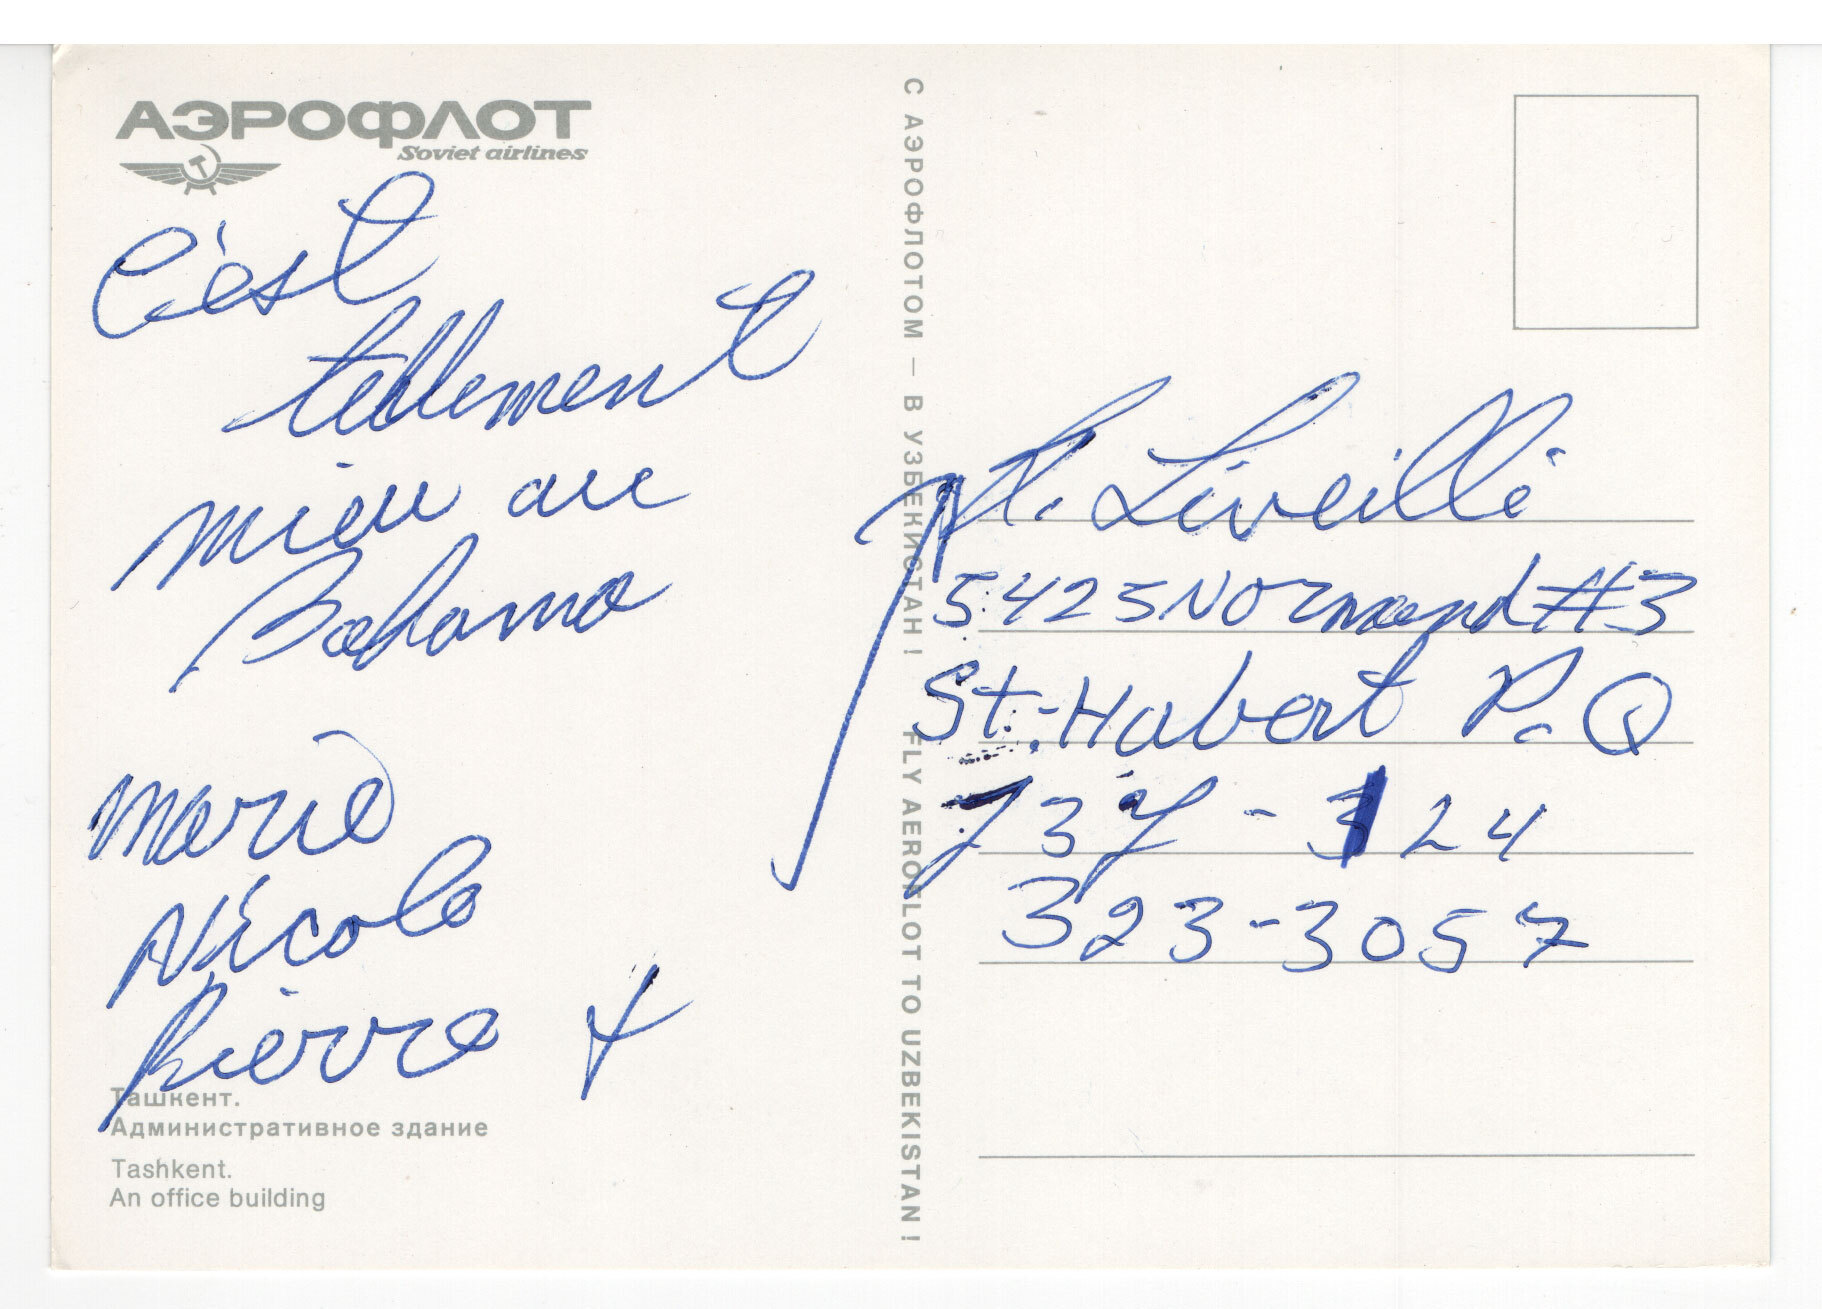 АЭРОФЛОТ
Soviet airlines
C'est
tellement
mieu au
Bahama
Mario
Nicole
Pierre
Ташкент.
Административное здание
Tashkent.
An office building
С АЭРОФЛОТОМ – В УЗБЕКИСТАН! FLY AEROFLOT TO UZBEKISTAN!
Léveillé
5425 Normand #3
St.-Hubert P.Q
J3Y - 24
323-3057